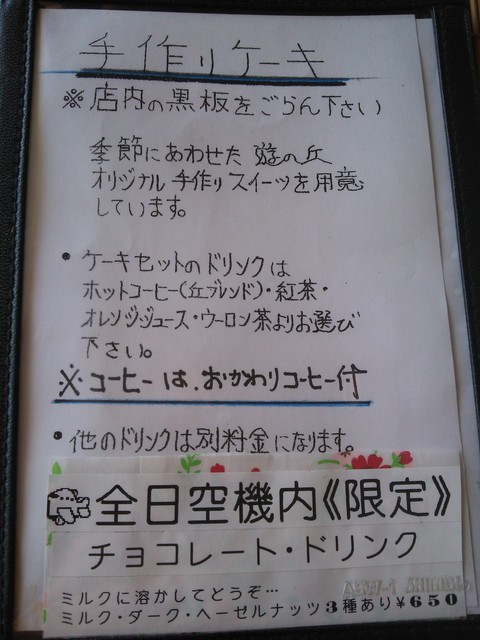 手作りケーキ
※店内の黒板をごらん下さい
季節にあわせた 遊の丘
オリジナル手作りスイーツを用意
しています。
• ケーキセットのドリンクは
ホットコーヒー(丘ブレンド)・紅茶・
オレンジジュース・ウーロン茶よりお選び
下さい。
※コーヒーは、おかわりコーヒー付
• 他のドリンクは別料金になります。
全日空機内《限定》
チョコレート・ドリンク
ミルクに溶かしてどうぞ…
ミルク・ダーク・ヘーゼルナッツ3種あり¥650